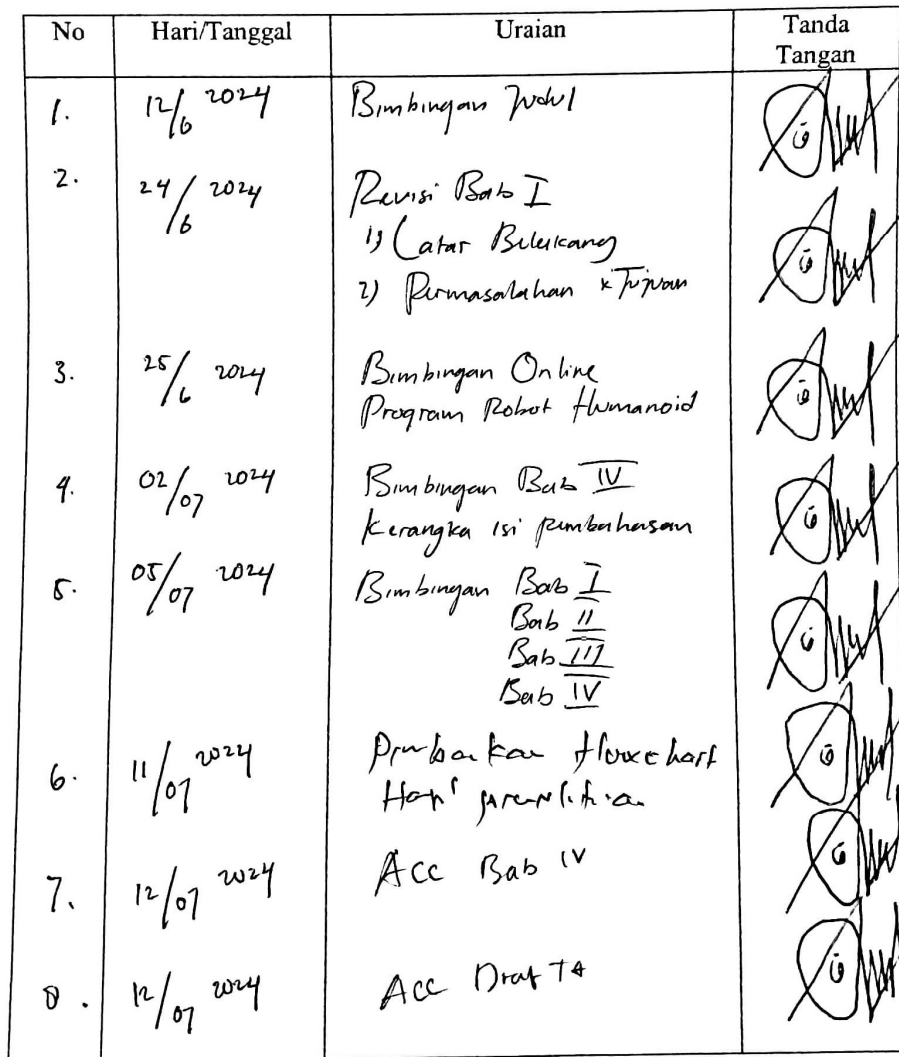 No Hari/Tanggal Uraian Tanda Tangan
1. 12/6 2024 Bimbingan Judul
2. 24/6 2024 Revisi Bab I
1) Latar Belakang
2) Permasalahan & Tujuan
3. 25/6 2024 Bimbingan Online
Program Robot Humanoid
4. 02/07 2024 Bimbingan Bab IV
Kerangka isi pembahasan
5. 05/07 2024 Bimbingan Bab I
Bab II
Bab III
Bab IV
6. 11/07 2024 Flowchart
Hasil penelitian
7. 12/07 2024 Acc Bab IV
8. 12/07 2024 Acc Draf TA